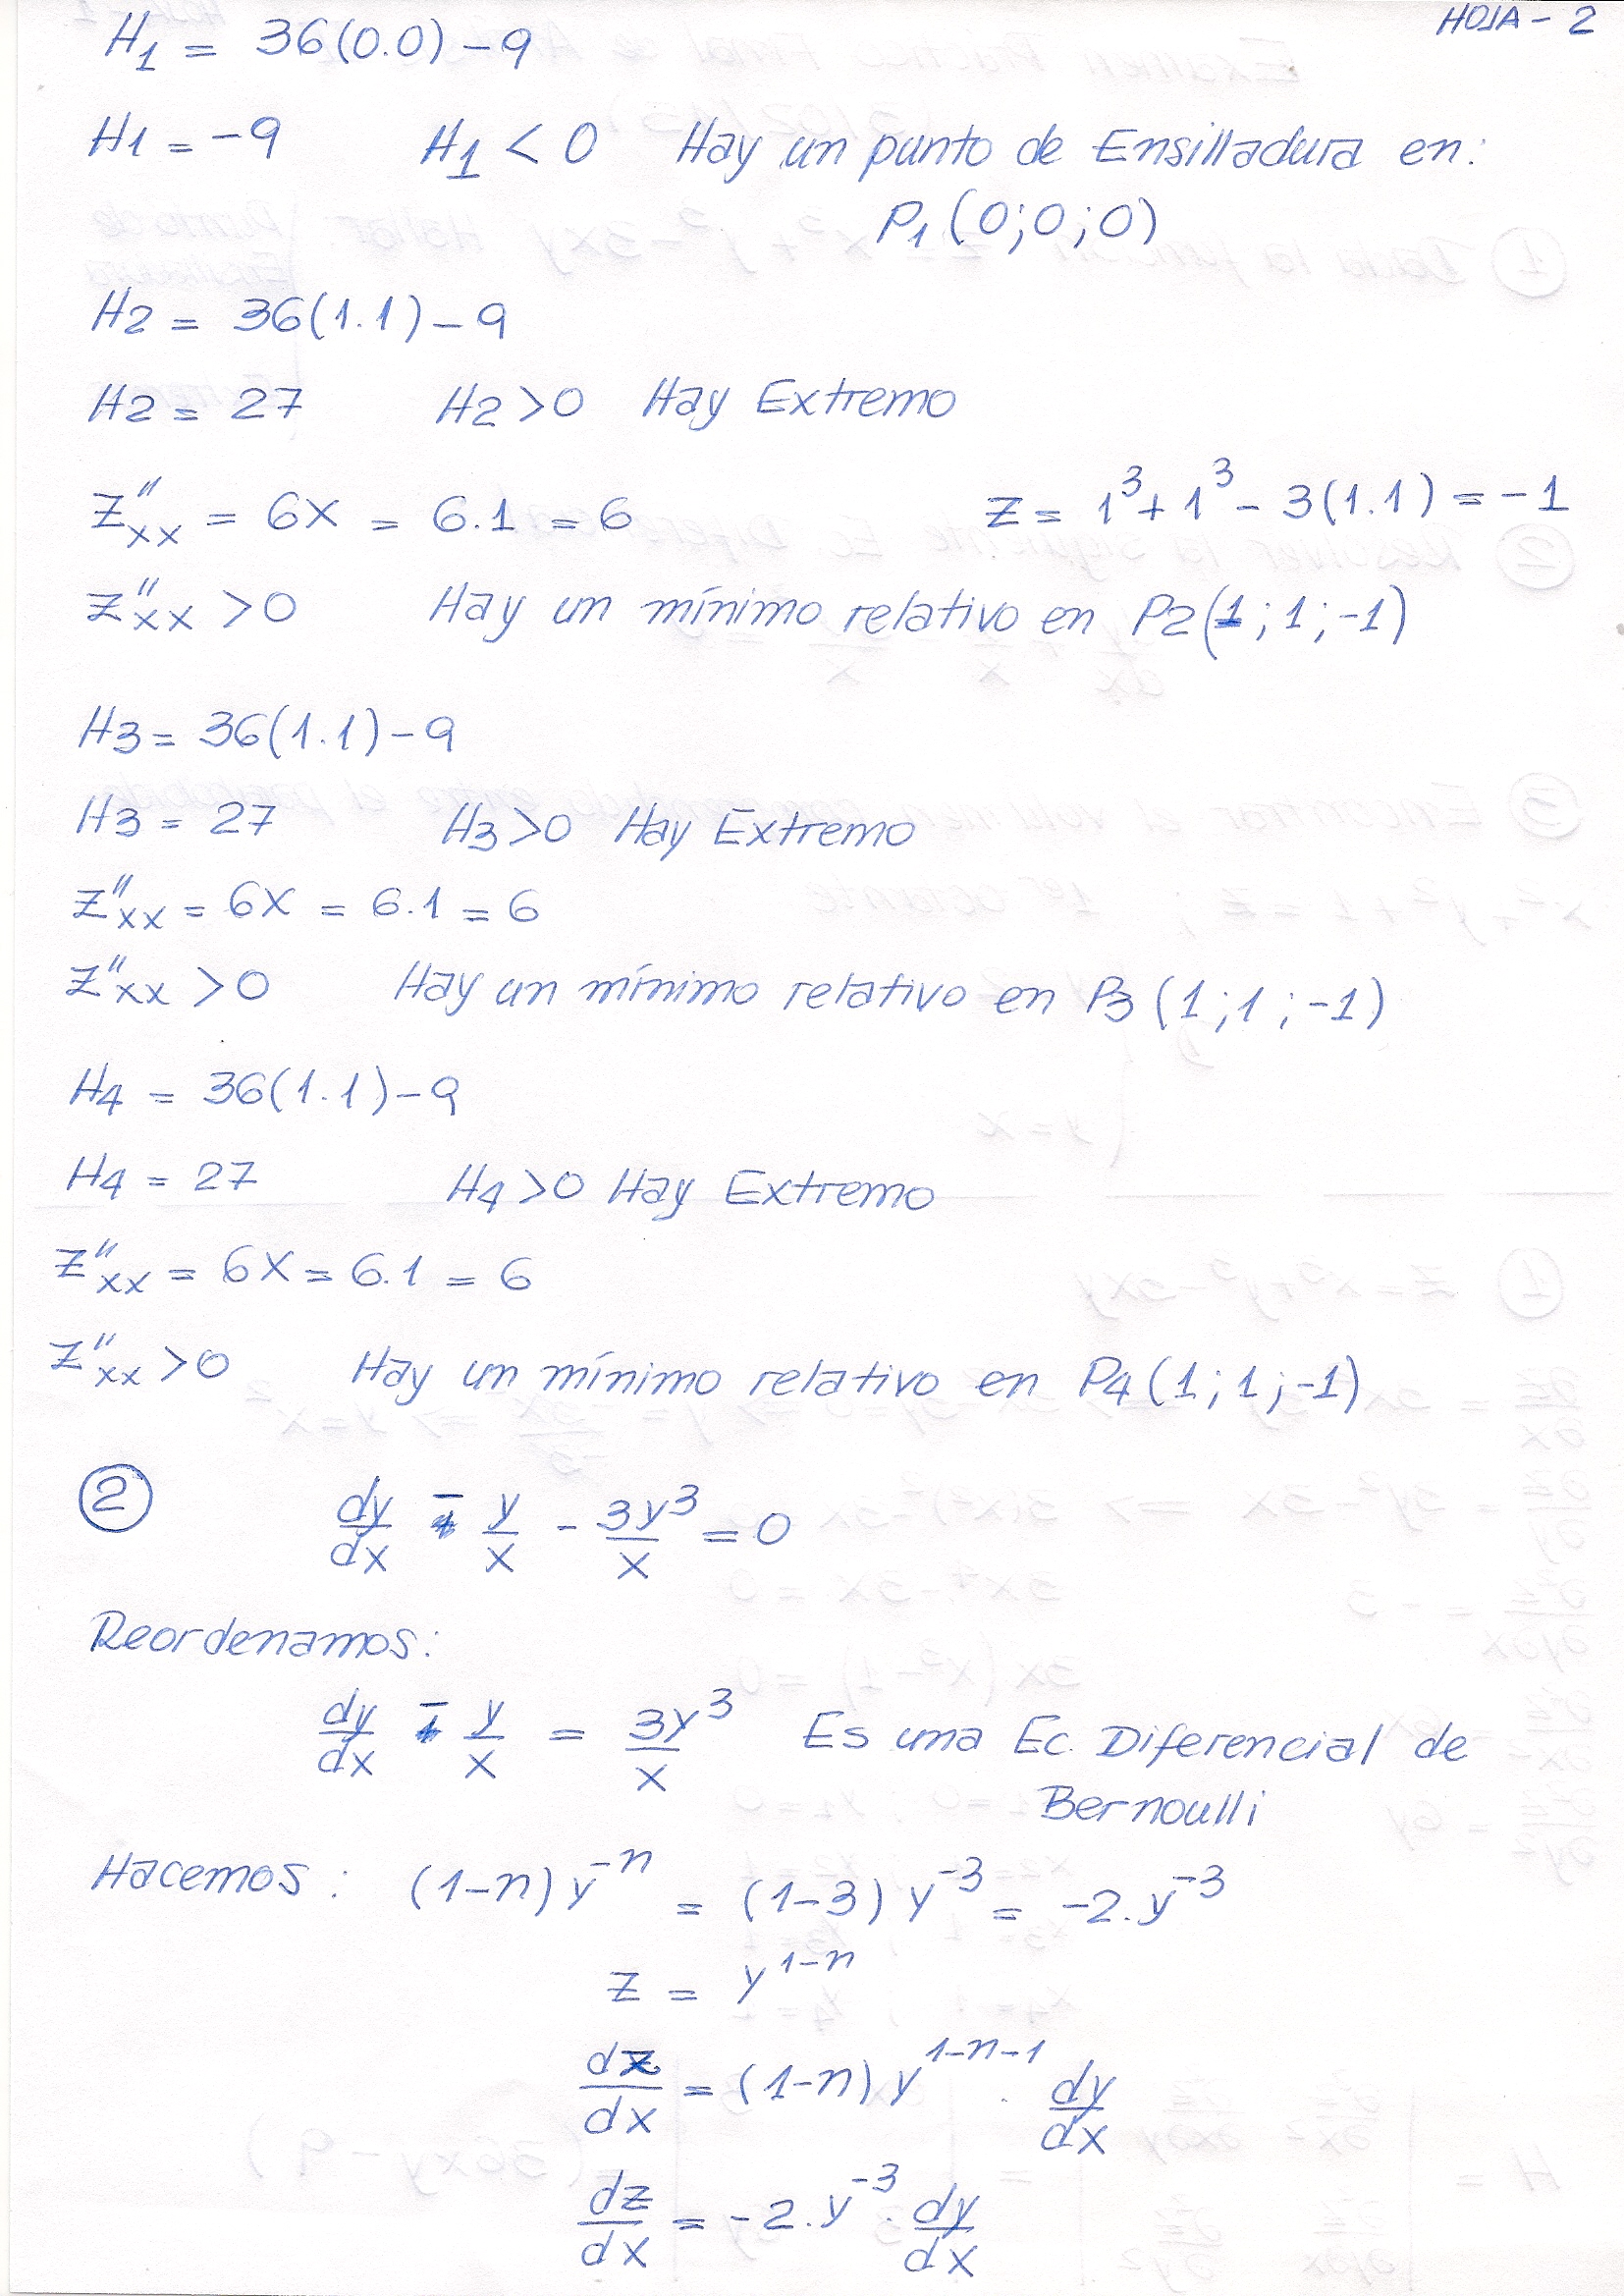 HOJA - 2
H1 = 36(0.0) - 9
H1 = -9 H1 < 0 Hay un punto de Ensilladura en:
P1 (0;0;0)
H2 = 36(1.1) - 9
H2 = 27 H2 > 0 Hay Extremo
Z''xx = 6X = 6.1 = 6 Z = 1³ + 1³ - 3(1.1) = -1
Z''xx > 0 Hay un mínimo relativo en P2(1;1;-1)
H3 = 36(1.1) - 9
H3 = 27 H3 > 0 Hay Extremo
Z''xx = 6X = 6.1 = 6
Z''xx > 0 Hay un mínimo relativo en P3 (1;1;-1)
H4 = 36(1.1) - 9
H4 = 27 H4 > 0 Hay Extremo
Z''xx = 6X = 6.1 = 6
Z''xx > 0 Hay un mínimo relativo en P4 (1;1;-1)
② dy/dx - y/x - 3y³/x = 0
Reordenamos:
dy/dx - y/x = 3y³/x Es una Ec. Diferencial de
Bernoulli
Hacemos: (1-n) y^-n = (1-3) y^-3 = -2.y^-3
z = y^1-n
dz/dx = (1-n) y^1-n-1 . dy/dx
dz/dx = -2.y^-3 . dy/dx